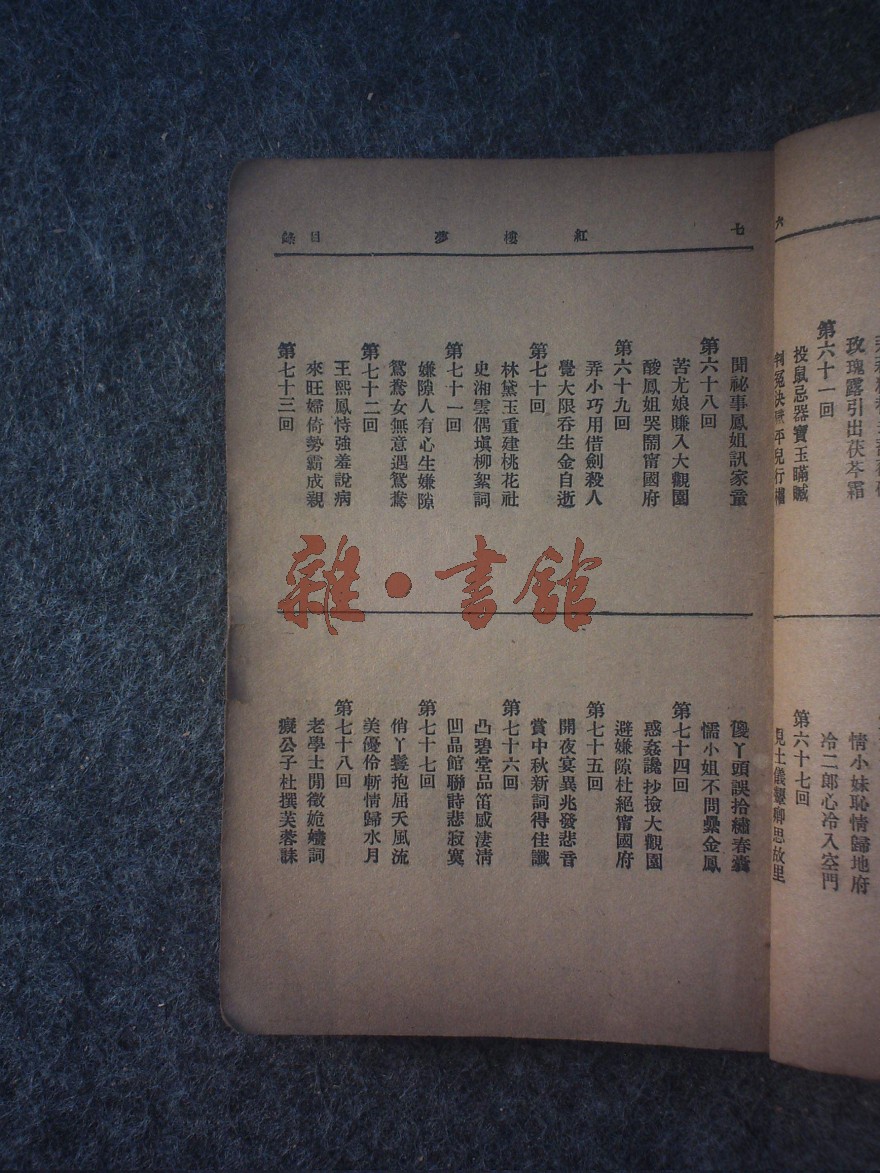 六
第六十一回
玫瑰露引出茯苓霜
投鼠忌器寶玉瞞贓
判冤決獄平兒行權
情小妹恥情歸地府
冷二郎心冷入空門
第六十七回
見土儀顰卿思故里
七 紅樓夢 目錄
聞祕事鳳姐訊家童
第六十八回
苦尤娘賺入大觀園
酸鳳姐哭鬧甯國府
第六十九回
弄小巧用借劍殺人
覺大限吞生金自逝
第七十回
林黛玉重建桃花社
史湘雲偶塡柳絮詞
第七十一回
嫌隙人有心生嫌隙
鴛鴦女無意遇鴛鴦
第七十二回
王熙鳳恃強羞說病
來旺婦倚勢霸成親
第七十三回
傻丫頭誤拾繡春囊
懦小姐不問纍金鳳
第七十四回
惑姦讒抄撿大觀園
避嫌隙杜絕甯國府
第七十五回
開夜宴異兆發悲音
賞中秋新詞得佳讖
第七十六回
凸碧堂品笛感淒淸
凹晶館聯詩悲寂寞
第七十七回
俏丫鬟抱屈夭風流
美優伶斬情歸水月
第七十八回
老學士閒徵姽嫿詞
癡公子杜撰芙蓉誄
雜·書館